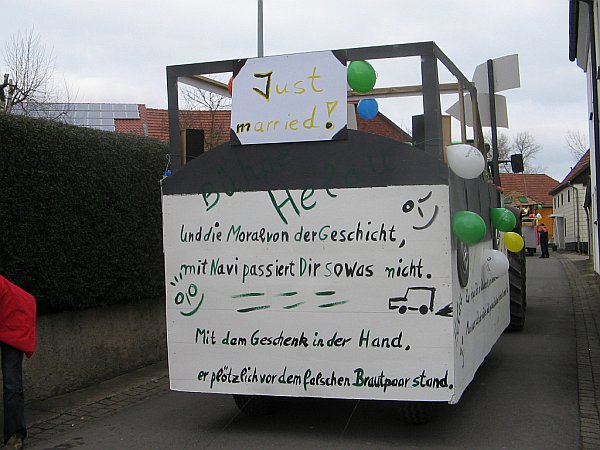 Just
married!
Helau
Und die Moral von der Geschicht,
mit Navi passiert Dir sowas nicht.
Mit dam Geschenk in der Hand,
er plötzlich vor dem falschen Brautpaar stand.